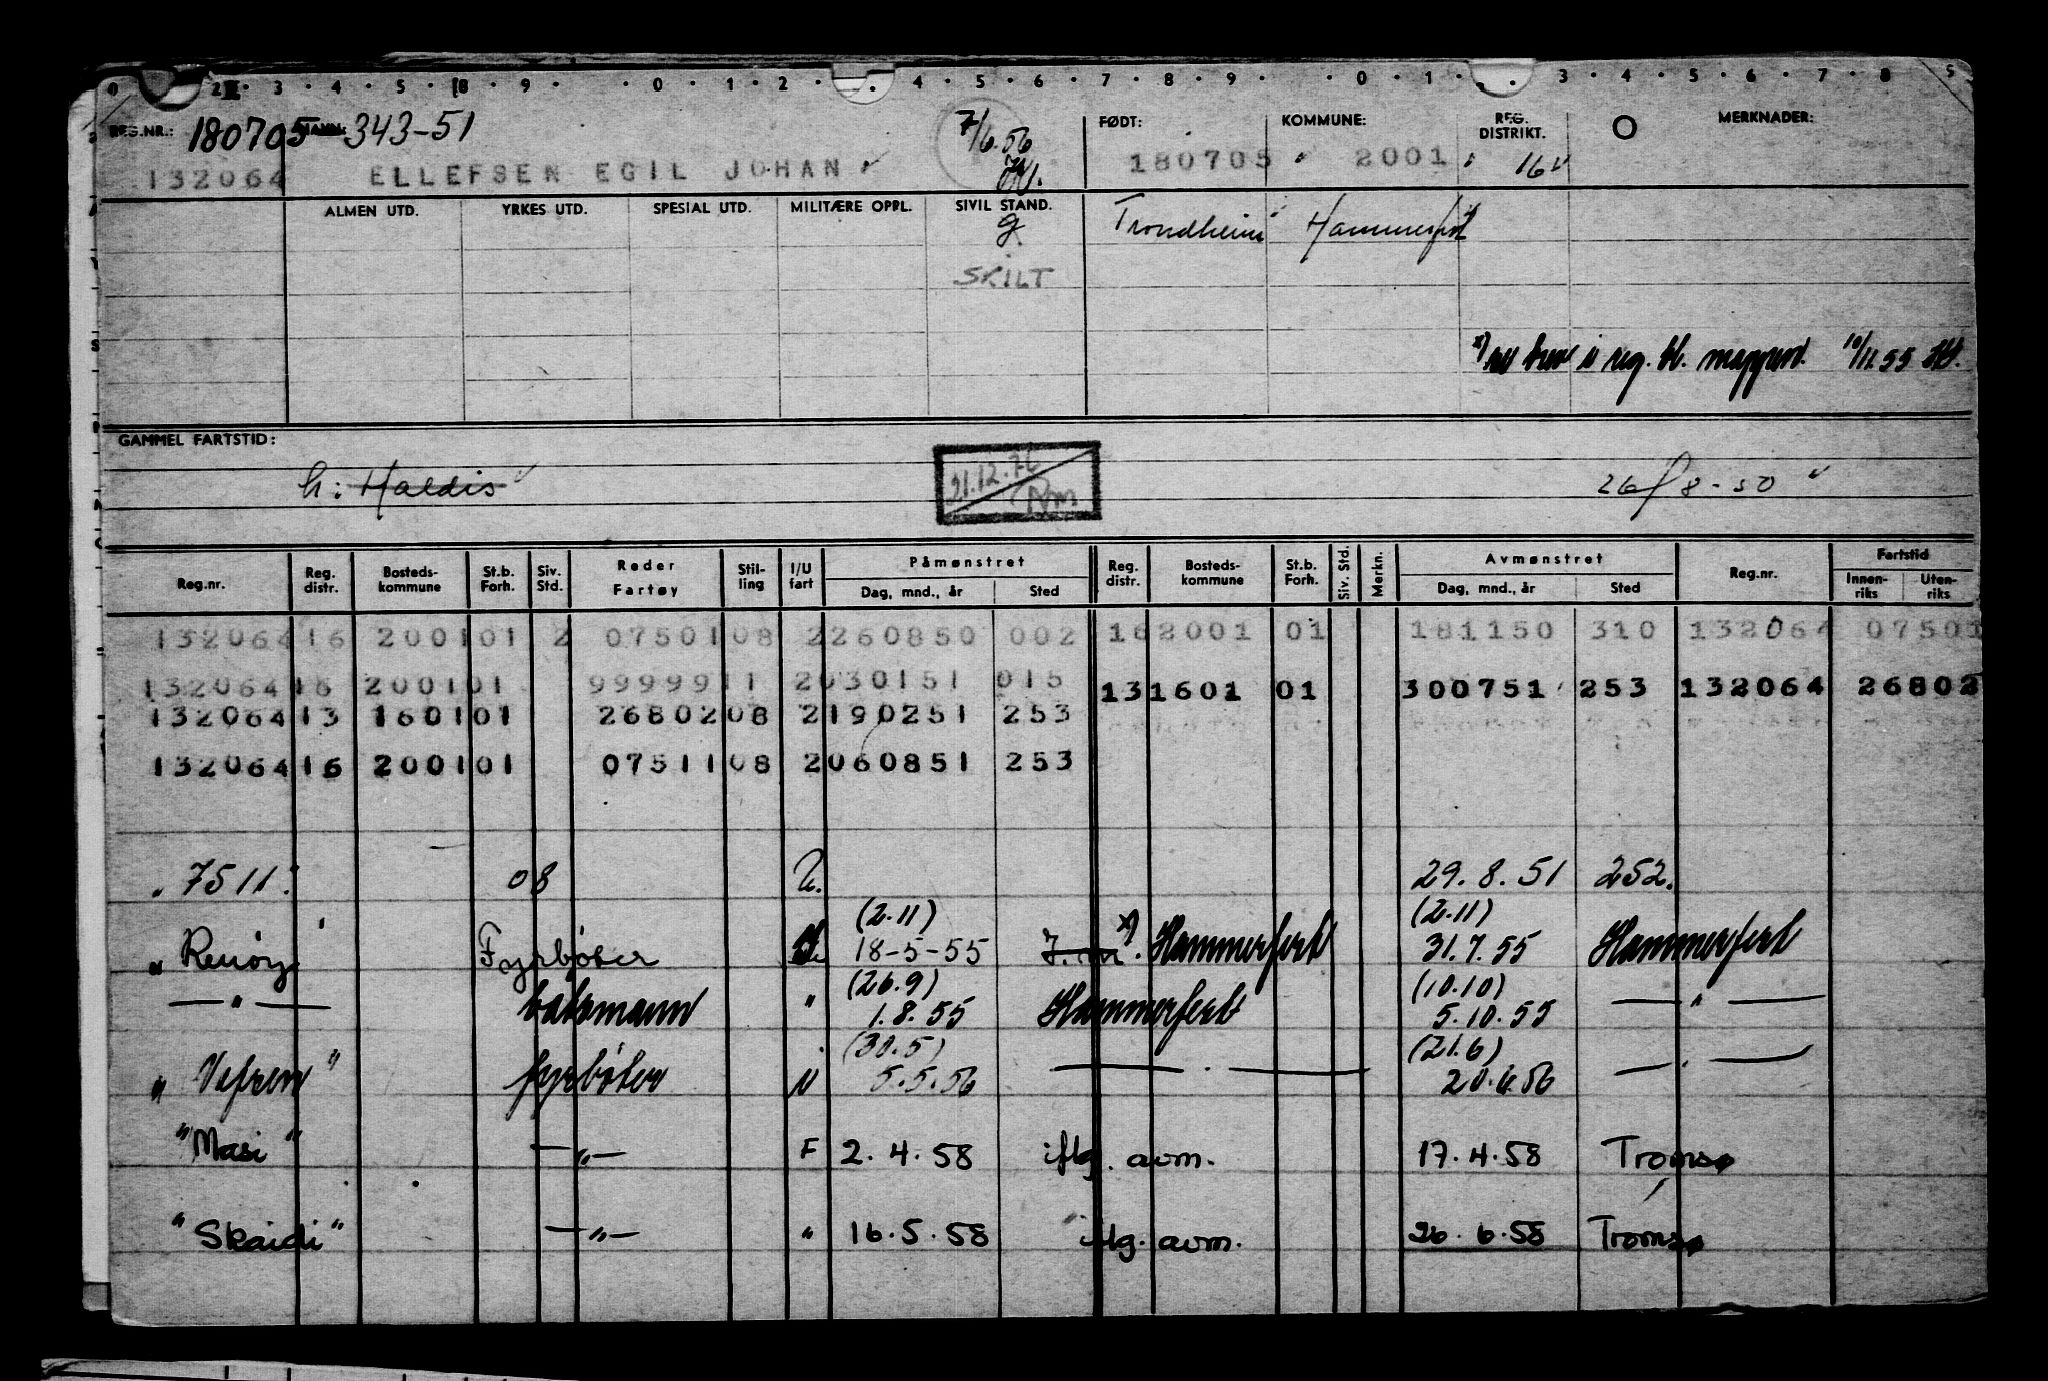 0 · 2 · 3 · 4 · 5 · 8 · 9 · · 0 · 1 · 2 · · 4 · 5 · 6 · 7 · 8 · 9 · · 0 · 1 · · 3 · 4 · 5 · 6 · 7 · 8 5
REG.NR.: 180705 MANN: 343-51 7/6.56 FØDT: KOMMUNE: REG. DISTRIKT. O MERKNADER:
132064 ELLEFSEN EGIL JOHAN 180705 2001 16
ALMEN UTD. YRKES UTD. SPESIAL UTD. MILITÆRE OPPL. SIVIL STAND.
g Trondheim Hammerfest
SKILT
x) brev i reg. bl. mappen. 10/11.55
GAMMEL FARTSTID:
21.12.76
h: Haldis 26/8-50
Reg.nr. Reg. distr. Bosteds- kommune St.b. Forh. Siv. Std. Reder Fartøy Stil- ling I/U fart Påmønstret Dag, mnd., år Sted Reg. distr. Bosteds- kommune St.b. Forh. Siv. Std. Merkn. Avmønstret Dag, mnd., år Sted Reg.nr. Fartstid Innen- riks Uten- riks
132064 16 2001 01 2 07501 08 2 260850 002 16 2001 01 181150 310 132064 07501
132064 16 2001 01 99999 11 2 030151 015 13 1601 01 300751 253 132064 26802
132064 13 1601 01 26802 08 2 190251 253
132064 16 2001 01 07511 08 2 060851 253
" 7511. 08 U. 29.8.51 252.
(2.11) (2.11)
" Renøy Fyrbøter 18-5-55 x) Hammerfest 31.7.55 Hammerfest
(26.9) (10.10)
— " — båtsmann " 1.8.55 Hammerfest 5.10.55 — " —
(30.5) (21.6)
" Vefsen " fyrbøter N 5.5.56 — " — 20.6.56 — " —
"Masi" — " — F 2.4.58 iflg. avm. 17.4.58 Tromsø
"Skaidi" — " — " 16.5.58 iflg. avm. 26.6.58 Tromsø